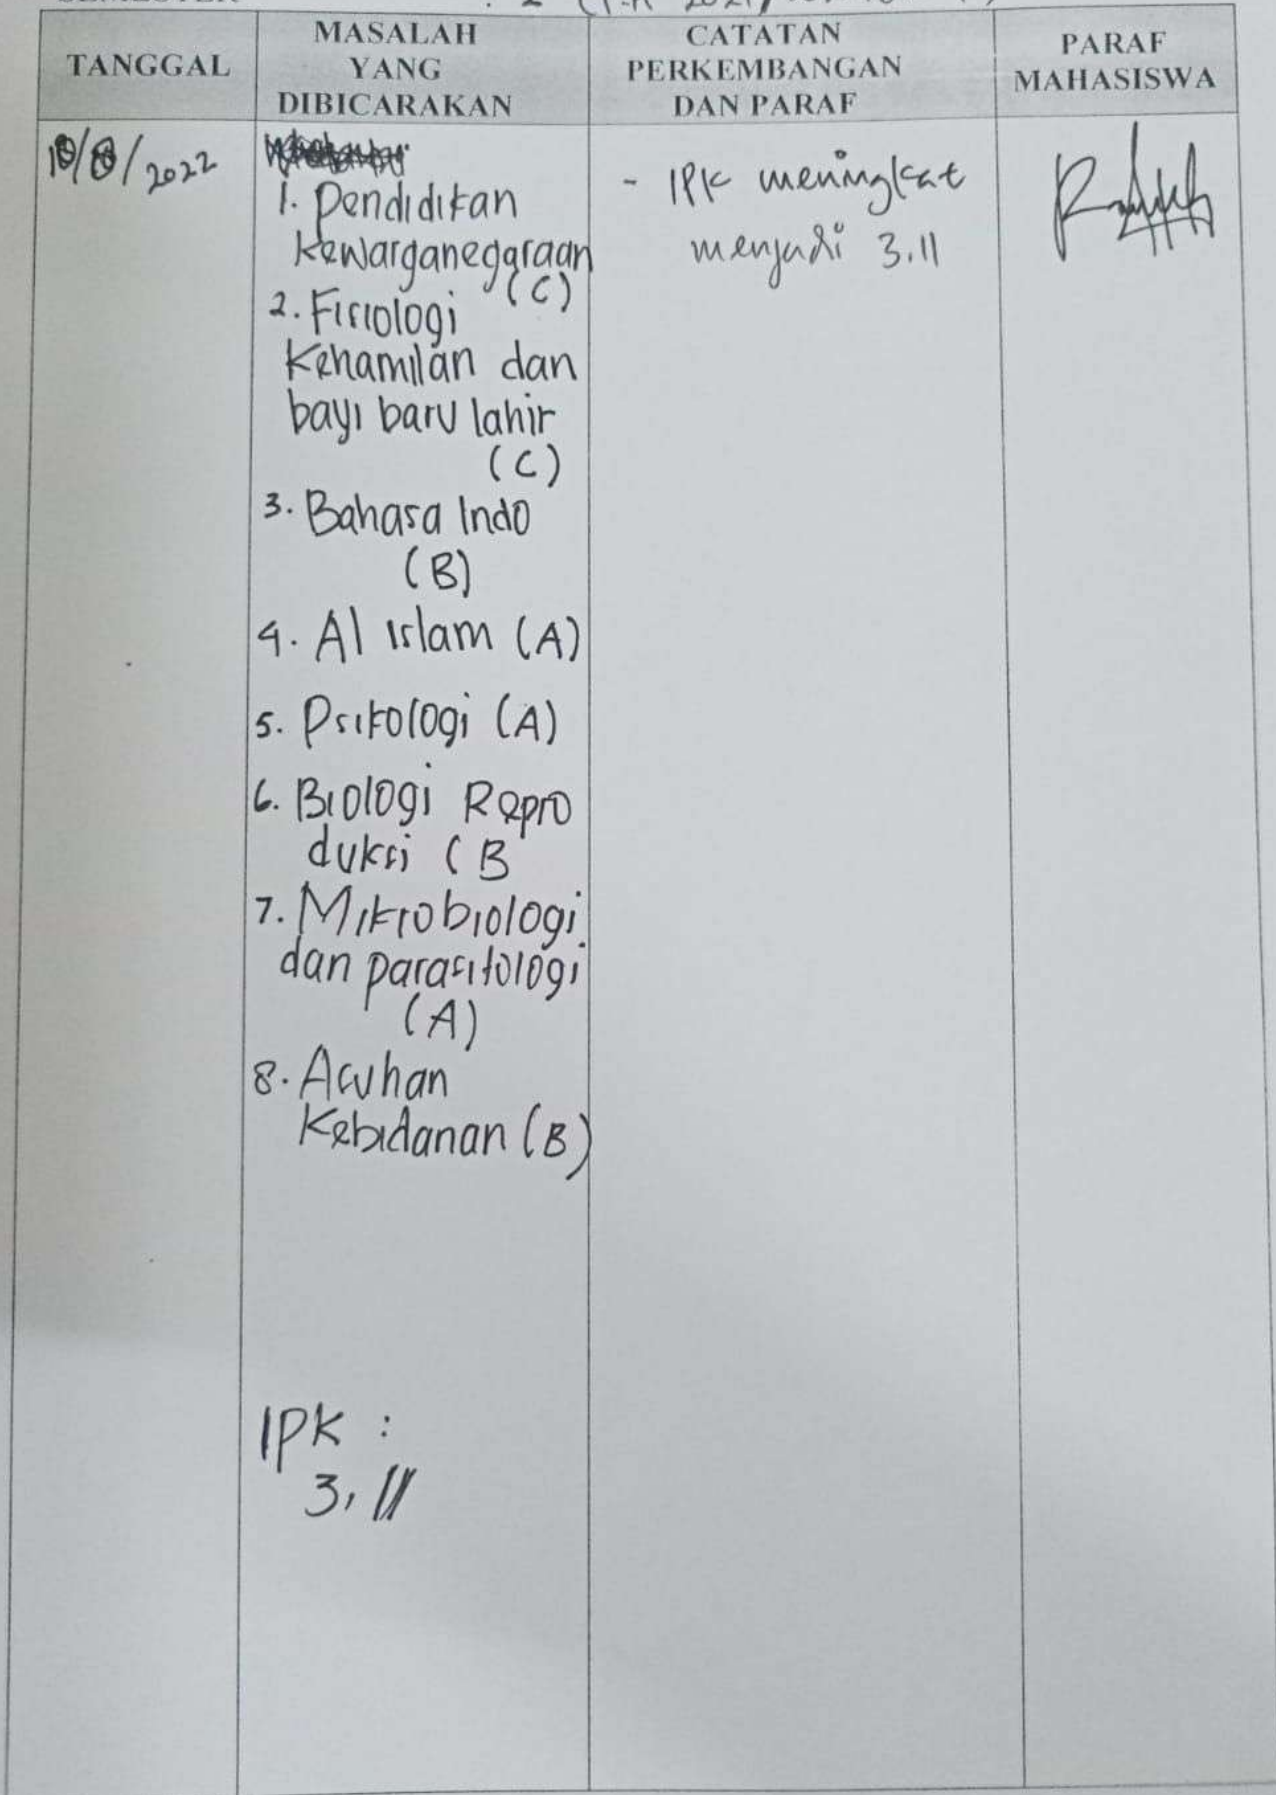 TANGGAL
MASALAH
YANG
DIBICARAKAN
CATATAN
PERKEMBANGAN
DAN PARAF
PARAF
MAHASISWA
/2022
1. Pendidikan
Kewarganegaraan
(C)
2. Fisiologi
Kehamilan dan
bayi baru lahir
(C)
3. Bahasa Indo
(B)
4. Al Islam (A)
5. Psikologi (A)
6. Biologi Repro
duksi (B
7. Mikrobiologi
dan parasitologi
(A)
8. Asuhan
Kebidanan (B)
IPK :
3,11
- IPK meningkat
menjadi 3.11